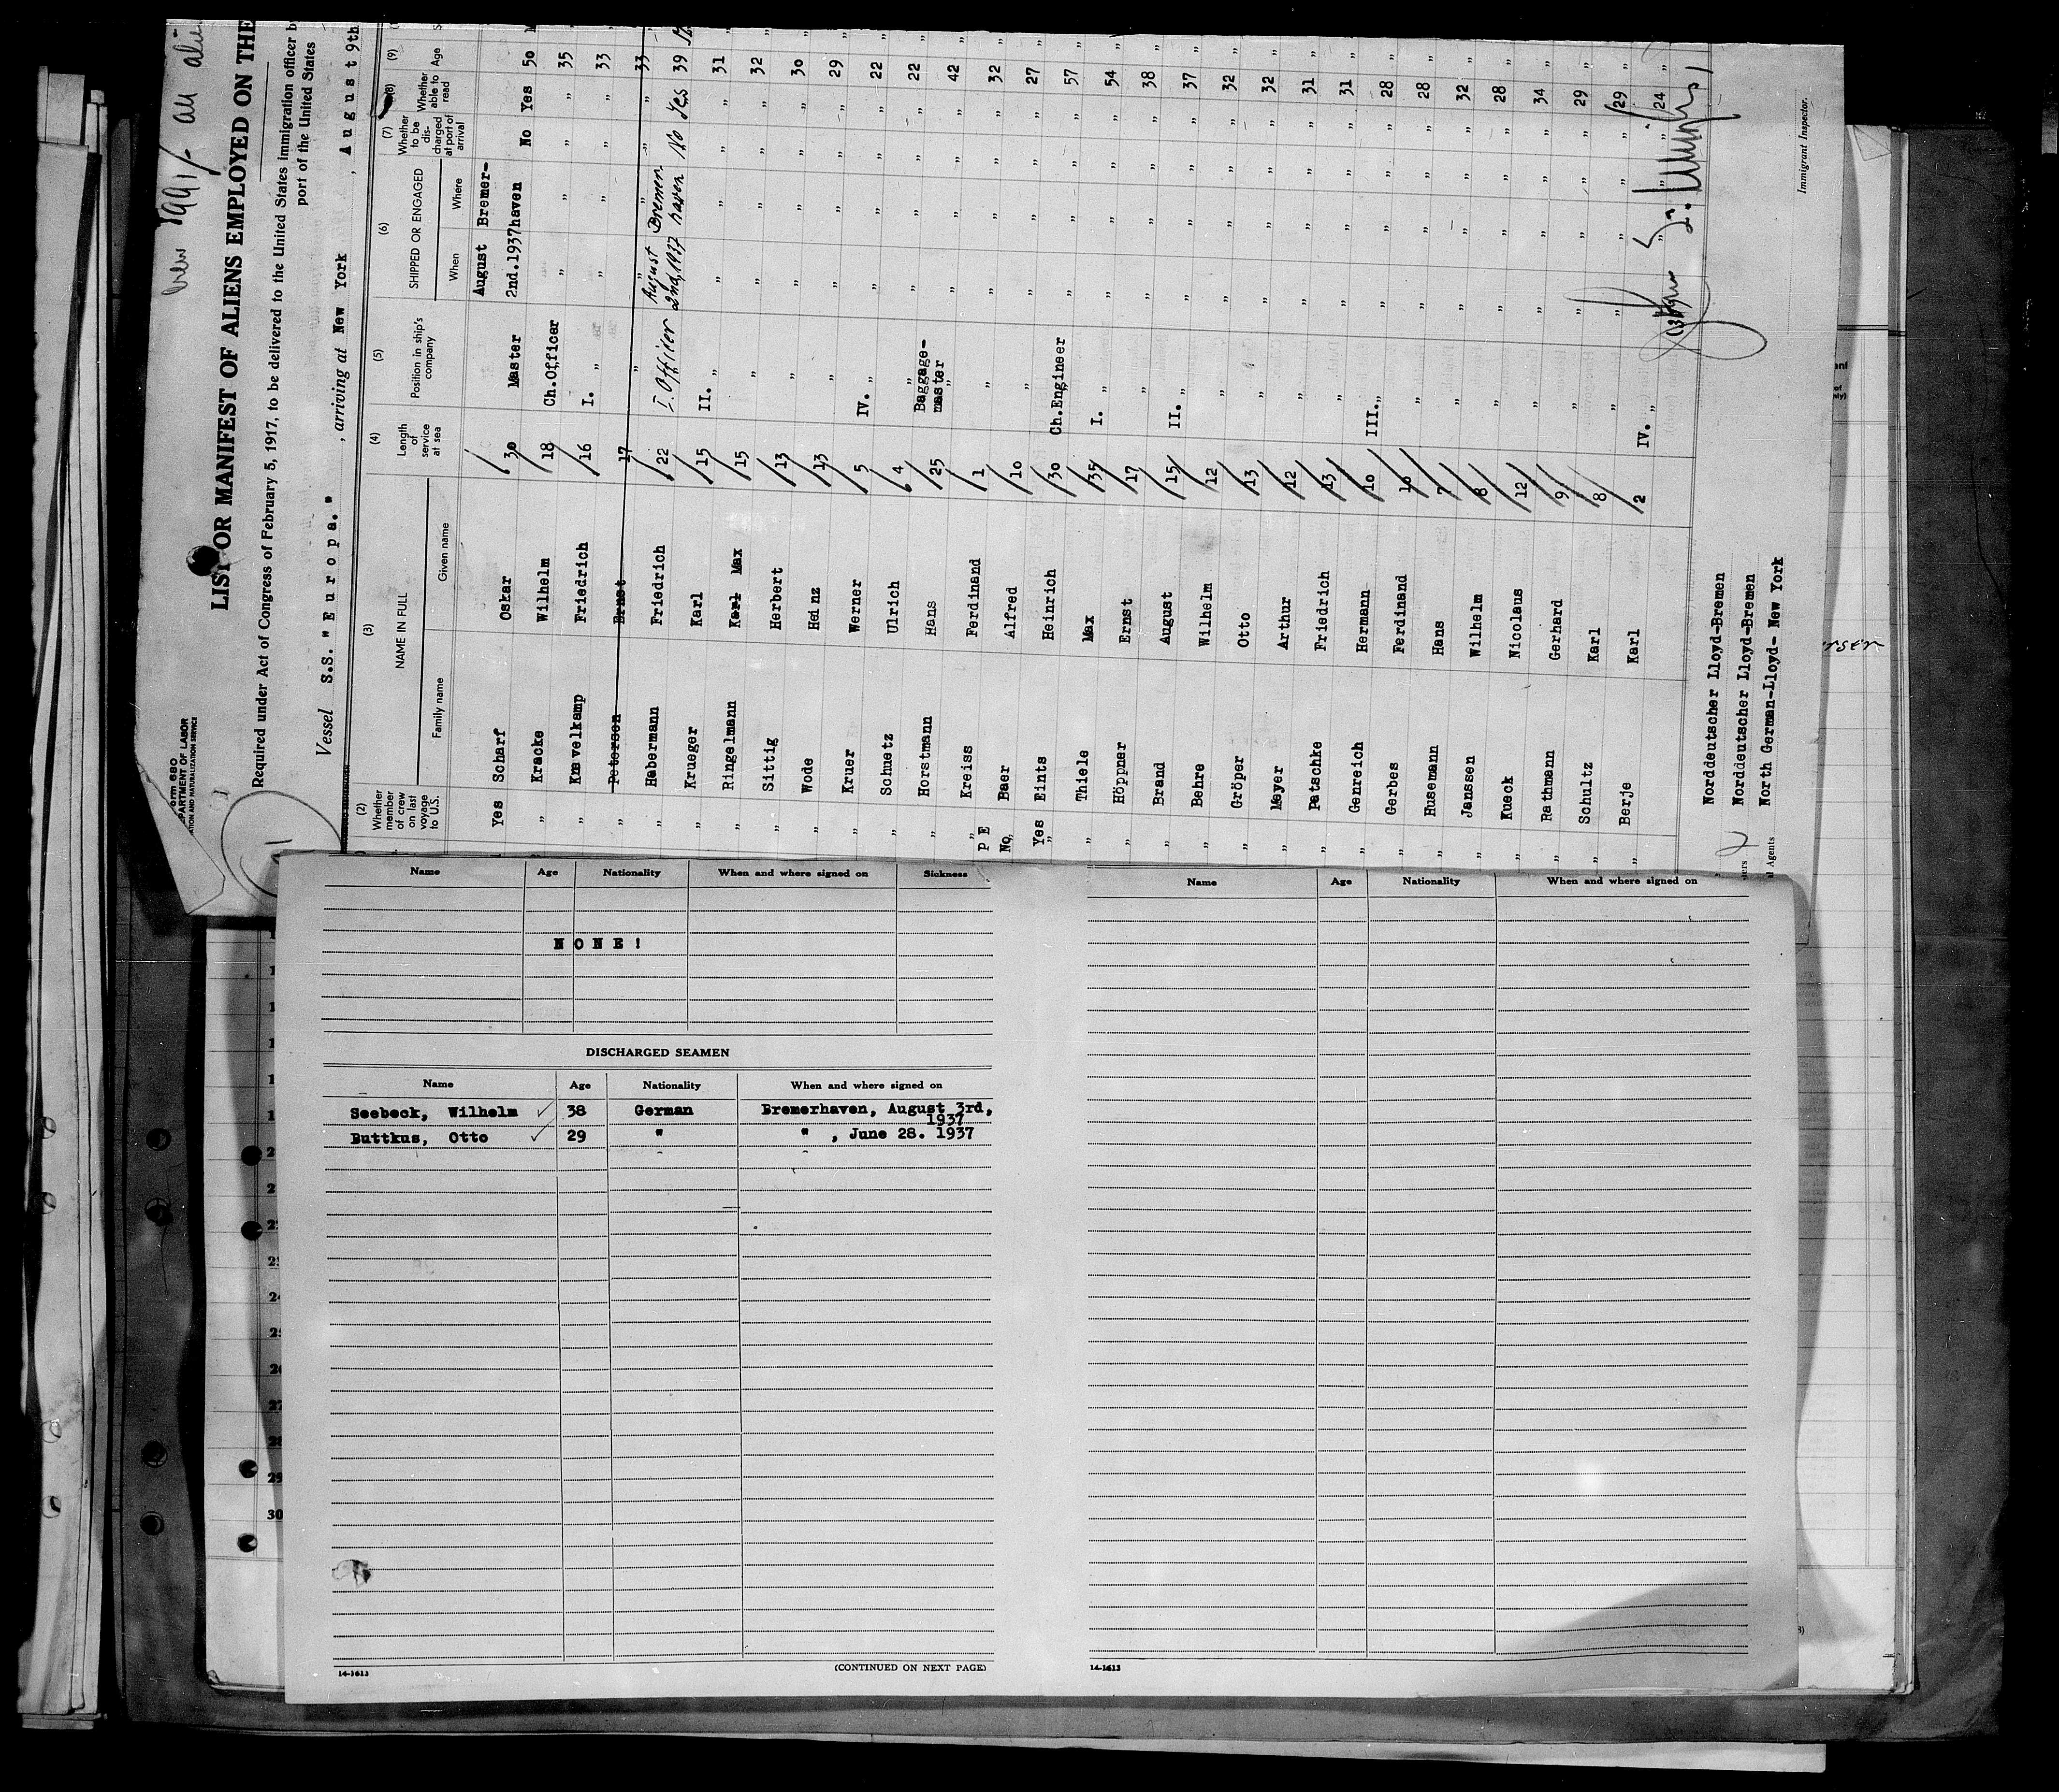 LIST OR MANIFEST OF ALIENS EMPLOYED ON THE
Required under Act of Congress of February 5, 1917, to be delivered to the United States immigration officer b
port of the United States
Vessel S.S. "Europa." , arriving at New York , August 9th
(2) Whether member of crew on last voyage to U.S. (3) NAME IN FULL Family name Given name (4) Length of service at sea (5) Position in ship's company (6) SHIPPED OR ENGAGED When Where (7) Whether to be discharged at port of arrival (8) Whether able to read (9) Age
Yes Scharf Oskar 30 Master August 2nd.1937 Bremerhaven No Yes 50
" Kracke Wilhelm 18 Ch.Officer " " " " 35
" Knevelkamp Friedrich 16 I. " " " " " 33
" Petersen Ernst 17 " " " " " 33
" Habermann Friedrich 22 I. Officer August 2nd, 1937 Bremen haven No Yes 39
" Krueger Karl 15 II. " " " " " 31
" Ringelmann Karl Max 15 " " " " " 32
" Sittig Herbert 13 " " " " " 30
" Wode Heinz 13 " " " " " 29
" Kruer Werner 5 IV. " " " " " 22
" Schnetz Ulrich 4 " " " " " 22
" Horstmann Hans 25 Baggage-master " " " " 42
" Kreiss Ferdinand 1 " " " " " 32
No Baer Alfred 10 " " " " " 27
Yes Eints Heinrich 30 Ch.Engineer " " " " 57
" Thiele Max 35 I. " " " " " 54
" Höppner Ernst 17 " " " " " 38
" Brand August 15 II. " " " " " 37
" Behre Wilhelm 12 " " " " " 32
" Gröper Otto 13 " " " " " 32
" Meyer Arthur 12 " " " " " 31
" Patschke Friedrich 13 " " " " " 31
" Genreich Hermann 10 III. " " " " " 28
" Gerbes Ferdinand 10 " " " " " 28
" Husemann Hans 7 " " " " " 32
" Janssen Wilhelm 8 " " " " " 28
" Kueck Nicolaus 12 " " " " " 34
" Rathmann Gerhard 9 " " " " " 29
" Schultz Karl 8 " " " " " 29
" Berje Karl 2 IV. " " " " " 24
Norddeutscher Lloyd-Bremen
Norddeutscher Lloyd-Bremen
North German-Lloyd- New York
Immigrant Inspector.
Name Age Nationality When and where signed on Sickness
NONE!
DISCHARGED SEAMEN
Name Age Nationality When and where signed on
Seebeck, Wilhelm ✓ 38 German Bremerhaven, August 3rd, 1937
Buttkus, Otto ✓ 29 " " , June 28. 1937
14-1613 (CONTINUED ON NEXT PAGE)
Name Age Nationality When and where signed on
14-1613